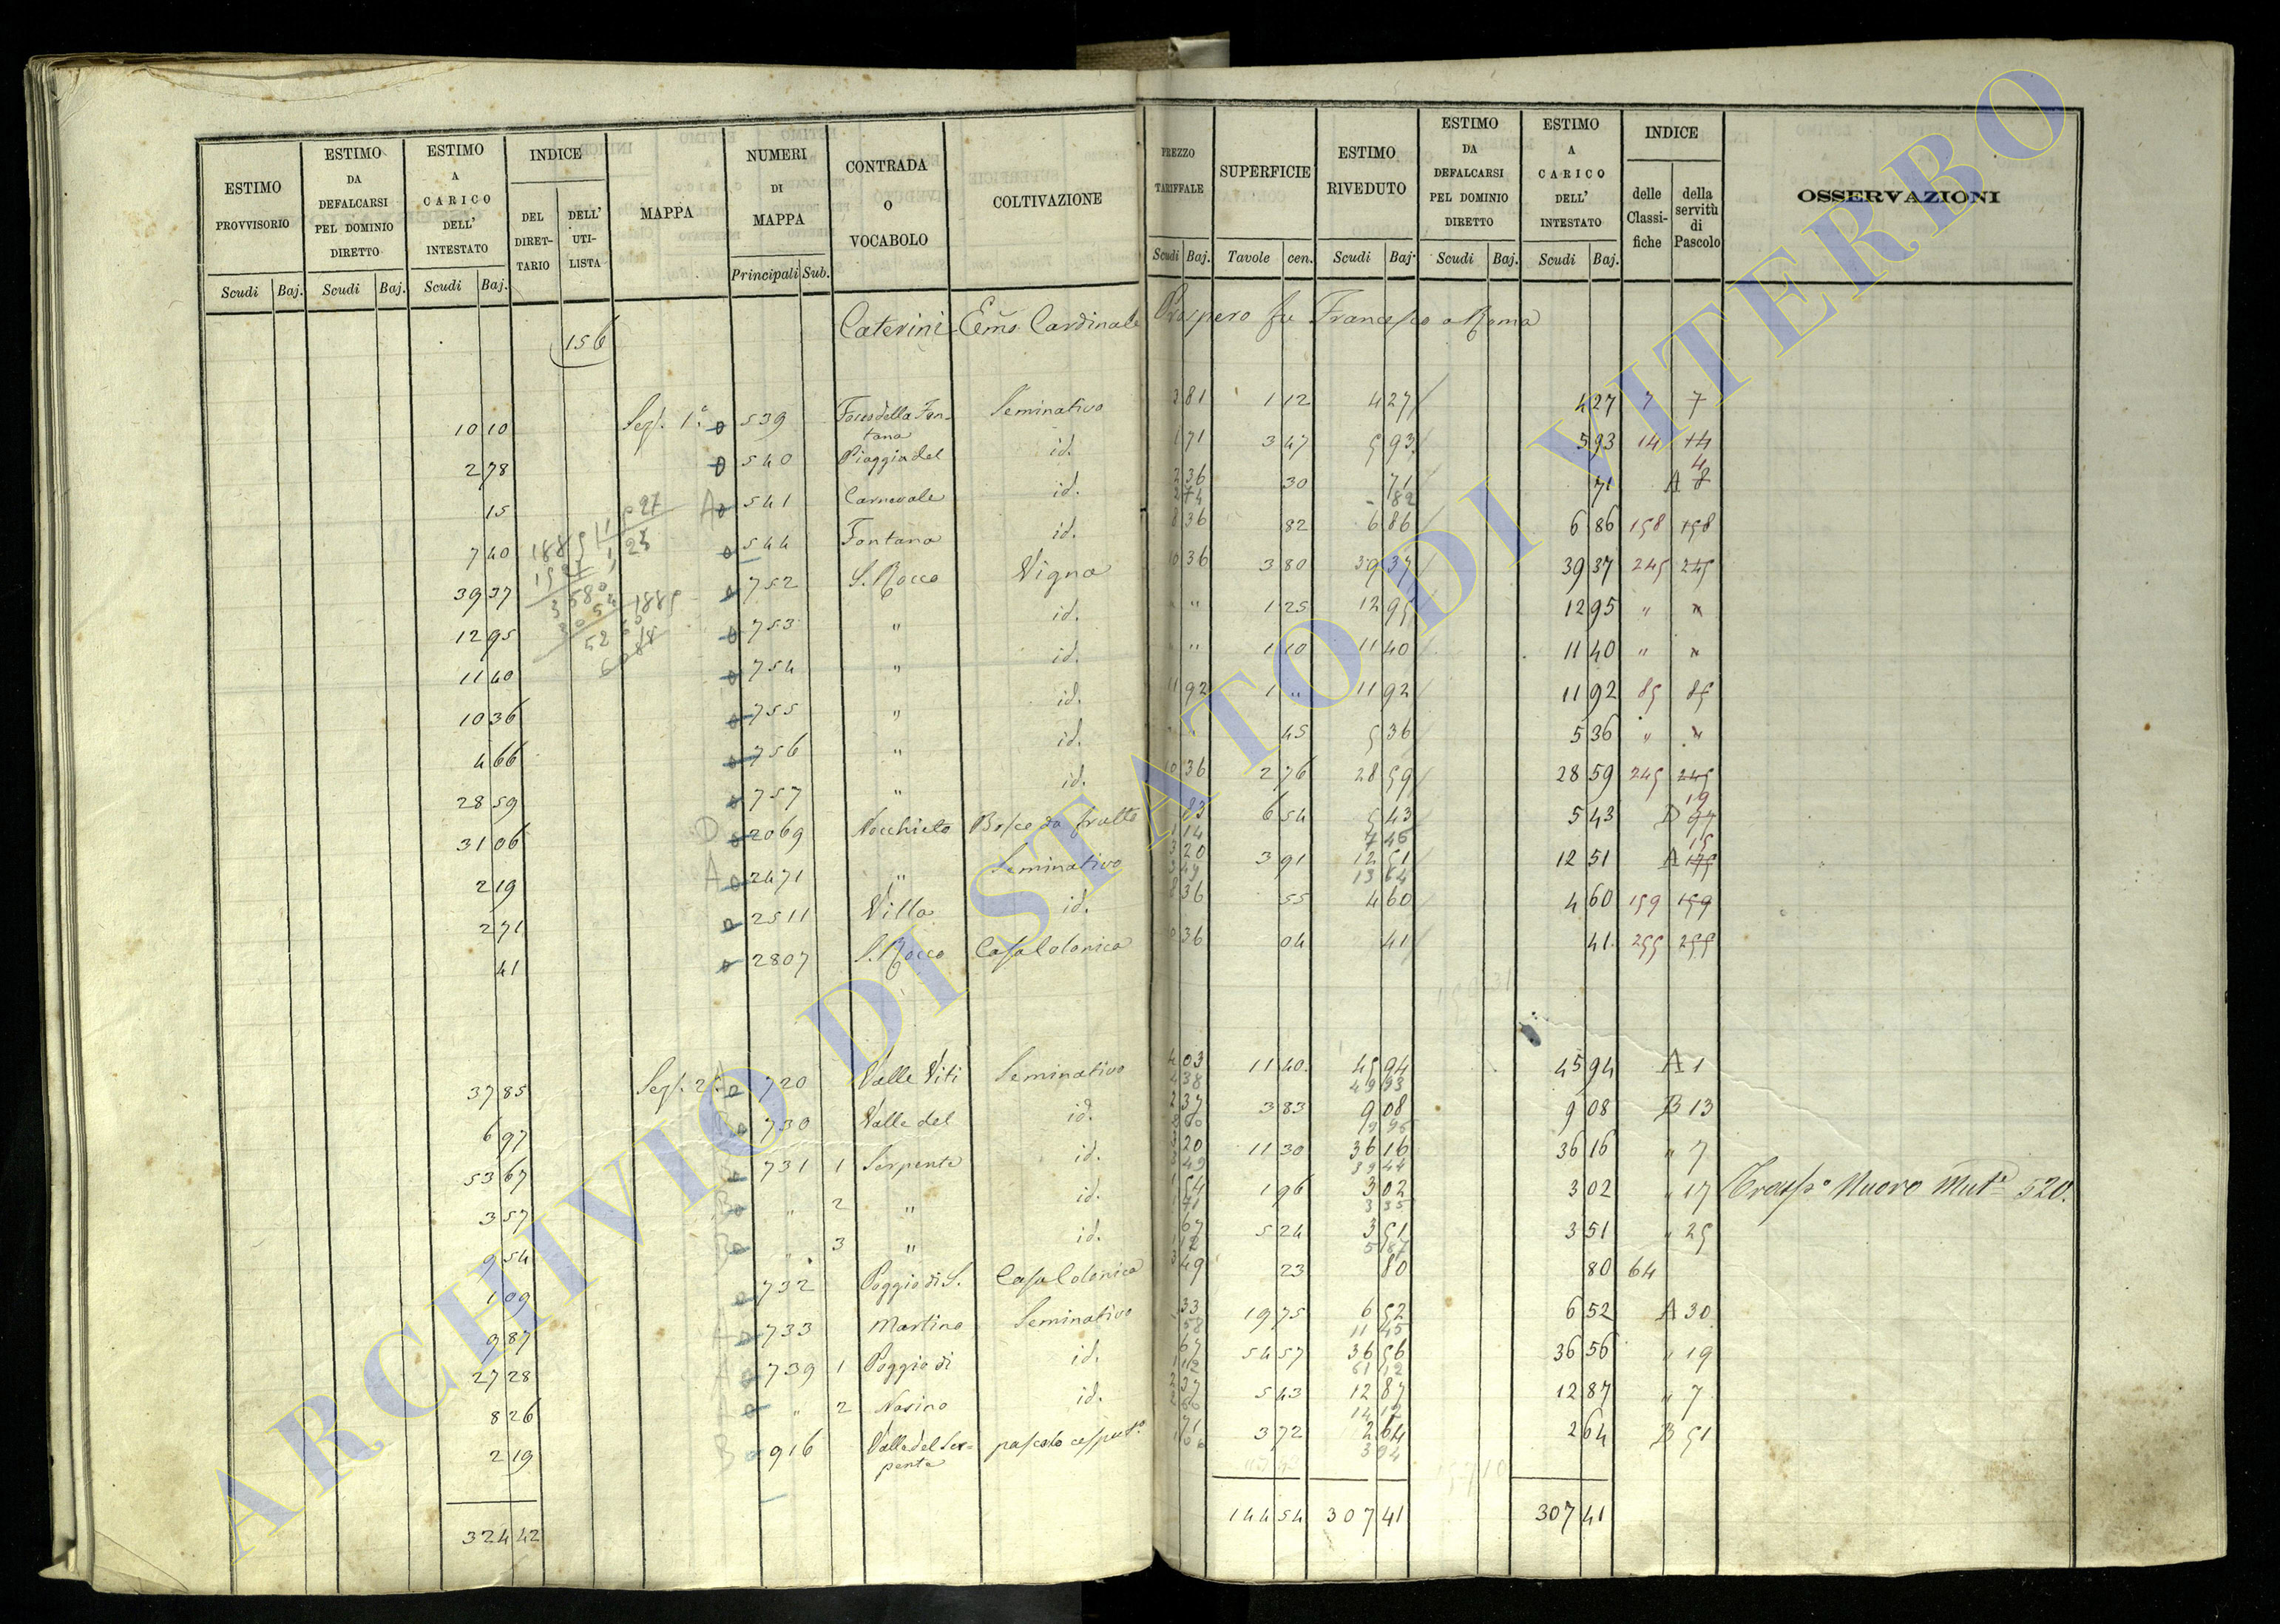 ESTIMO PROVVISORIO | ESTIMO DA DEFALCARSI PEL DOMINIO DIRETTO | ESTIMO A CARICO DELL' INTESTATO | INDICE DEL DIRETTARIO | DELL' UTILISTA | MAPPA | NUMERI DI MAPPA | CONTRADA O VOCABOLO | COLTIVAZIONE | PREZZO TARIFFALE | SUPERFICIE | ESTIMO RIVEDUTO | ESTIMO DA DEFALCARSI PEL DOMINIO DIRETTO | ESTIMO A CARICO DELL' INTESTATO | INDICE delle Classifiche | della servitù di Pascolo | OSSERVAZIONI
Scudi | Baj. | Scudi | Baj. | Scudi | Baj. | Principali | Sub. | Scudi | Baj. | Tavole | cen. | Scudi | Baj. | Scudi | Baj. | Scudi | Baj.
156 Caterini Emo Cardinale Prospero fu Francesco a Roma
10 10 | Sez. 1a | 539 | Fosso della Fontana | Seminativo | 3 81 | 1 12 | 4 27 | 4 27 | 7 | 7
2 78 | 540 | Piaggia del | id. | 1 71 | 3 47 | 5 93 | 5 93 | 14 | 14
15 | A | 541 | Carnevale | id. | 2 36 | 30 | 71 | 71 | A 8 4
7 40 | 544 | Fontana | id. | 8 36 | 82 | 6 86 | 6 86 | 158 | 158
39 37 | 752 | S. Rocco | Vigna | 10 36 | 3 80 | 39 37 | 39 37 | 245 | 245
12 95 | 753 | " | id. | " " | 1 25 | 12 95 | 12 95 | " | "
11 40 | 754 | " | id. | " " | 1 10 | 11 40 | 11 40 | " | "
10 36 | 755 | " | id. | 11 92 | 1 " | 11 92 | 11 92 | 85 | 85
4 66 | 756 | " | id. | 45 | 5 36 | 5 36 | " | "
28 59 | 757 | " | id. | 10 36 | 2 76 | 28 59 | 28 59 | 245 | 245
31 06 | D | 2069 | Nocchieto | Bosco da frutto | 83 | 6 54 | 5 43 | 5 43 | D 19
2 19 | A | 2471 | " | Seminativo | 3 20 | 3 91 | 12 51 | 12 51 | A 175 15
2 71 | 2511 | Villa | id. | 8 36 | 55 | 4 60 | 4 60 | 159 | 159
41 | 2807 | S. Rocco | Casa Colonica | 10 36 | 04 | 41 | 41 | 255 | 255
37 85 | Sez. 2a | A | 720 | Valle Viti | Seminativo | 4 03 | 11 40 | 45 94 | 45 94 | A 1
6 97 | B | 730 | Valle del | id. | 2 37 | 3 83 | 9 08 | 9 08 | B 13
53 67 | B | 731 | 1 | Serpente | id. | 3 20 | 11 30 | 36 16 | 36 16 | " 7
3 57 | B | " | 2 | " | id. | 1 54 | 1 96 | 3 02 | 3 02 | " 17 | Trasp.o Nuovo Mut.e 520.
9 54 | B | " | 3 | " | id. | 67 | 5 24 | 3 51 | 3 51 | " 25
1 09 | 732 | Poggio di S. | Casa Colonica | 3 49 | 23 | 80 | 80 | 64
9 87 | A | 733 | Martino | Seminativo | 33 | 19 75 | 6 52 | 6 52 | A 30
27 28 | A | 739 | 1 | Poggio di | id. | 67 | 54 57 | 36 56 | 36 56 | " 19
8 26 | A | " | 2 | Nasino | id. | 2 37 | 5 43 | 12 87 | 12 87 | " 7
2 19 | B | 916 | Valle del Serpente | pascolo cesput.o | 71 | 3 72 | 2 64 | 2 64 | B 51
324 42 | 144 54 | 307 41 | 307 41
ARCHIVIO DI STATO DI VITERBO